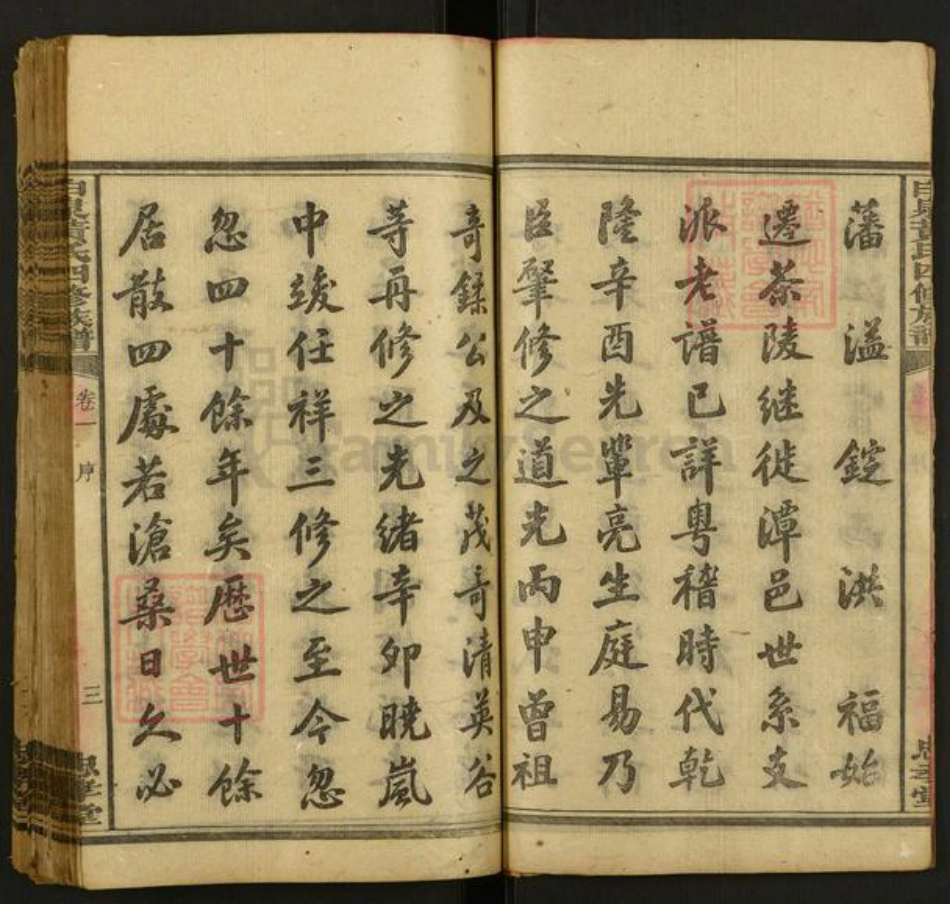 藩溢錠洪福始
遷茶陵继徙潭邑世系支
派老譜已詳粤稽時代乾
隆辛酉先輩亮生庭易乃
肇修之道光丙申曾祖
奇鑅公及之茂奇清英谷
等再修之光绪辛卯曉嵐
中竣任祥三修之至今忽
忽四十餘年矣歷世十餘
居散四處若滄桑日久必
氏四修族譜
卷一
序
三
FamilySearch